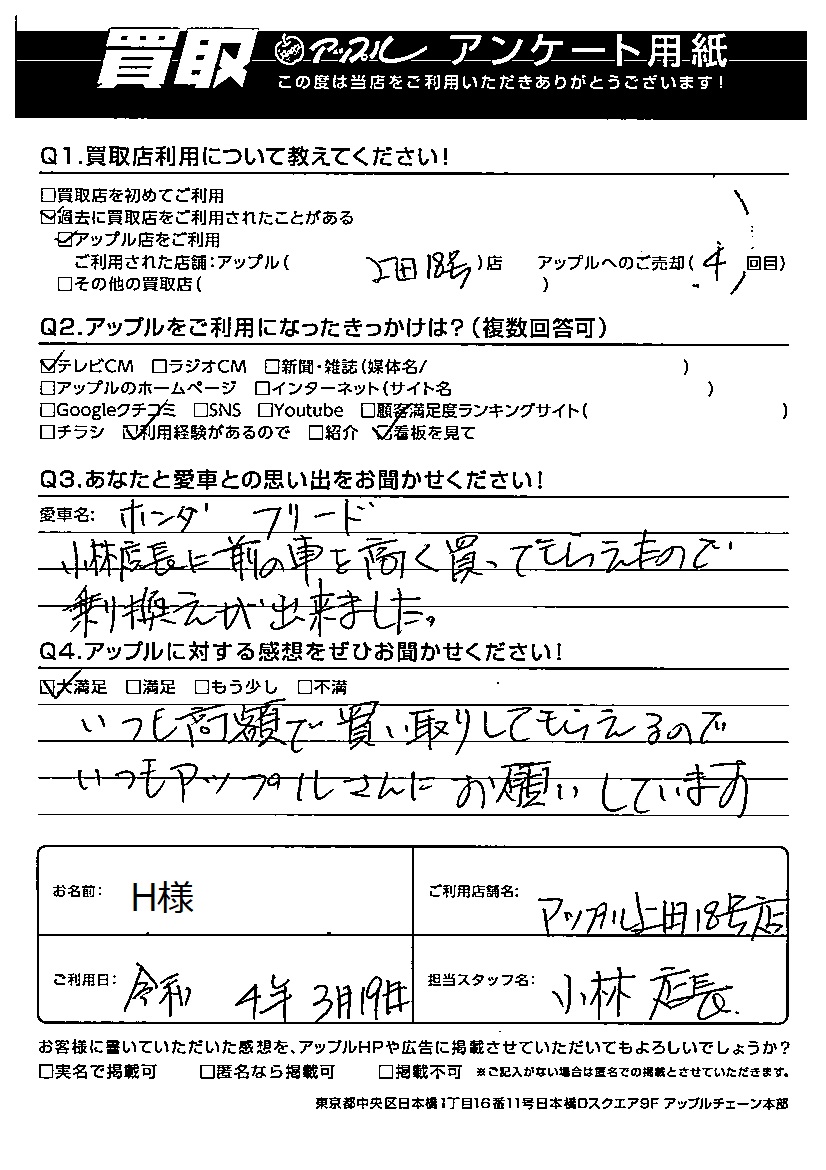 買取 アップル アンケート用紙
この度は当店をご利用いただきありがとうございます!
Q1.買取店利用について教えてください!
□買取店を初めてご利用
☑過去に買取店をご利用されたことがある
☑アップル店をご利用
ご利用された店舗:アップル( 上田18号 )店 アップルへのご売却( 4 回目)
□その他の買取店( )
Q2.アップルをご利用になったきっかけは?(複数回答可)
☑テレビCM □ラジオCM □新聞・雑誌(媒体名/ )
□アップルのホームページ □インターネット(サイト名 )
□Googleクチコミ □SNS □Youtube □顧客満足度ランキングサイト( )
□チラシ ☑利用経験があるので □紹介 ☑看板を見て
Q3.あなたと愛車との思い出をお聞かせください!
愛車名: ホンダ フリード
小林店長に前の車を高く買ってもらえたもので
乗り換えが出来ました。
Q4.アップルに対する感想をぜひお聞かせください!
☑大満足 □満足 □もう少し □不満
いつも高額で買い取りしてもらえるので
いつもアップルさんにお願いしています
お名前: H様 ご利用店舗名: アップル上田18号店
ご利用日: 令和 4年 3月19日 担当スタッフ名: 小林 店長
お客様に書いていただいた感想を、アップルHPや広告に掲載させていただいてもよろしいでしょうか?
□実名で掲載可 □匿名なら掲載可 □掲載不可 ※ご記入がない場合は匿名での掲載とさせていただきます。
東京都中央区日本橋1丁目16番11号日本橋Dスクエア9F アップルチェーン本部